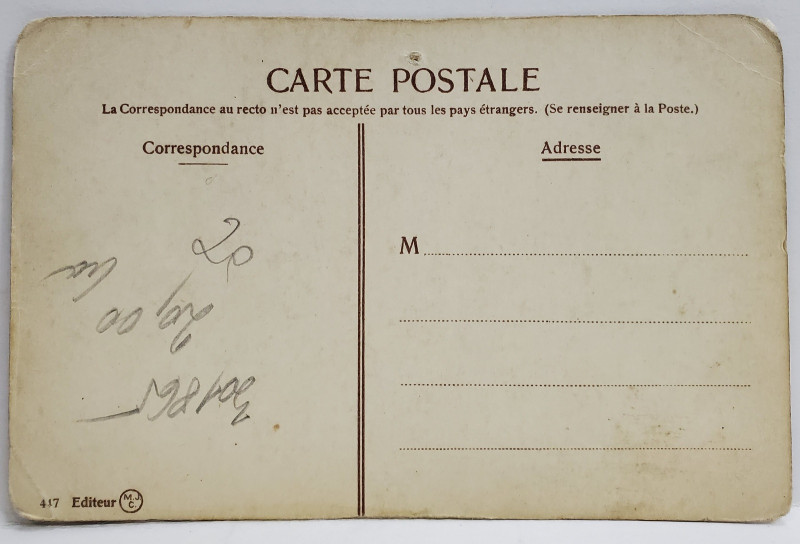 CARTE POSTALE
La Correspondance au recto n'est pas acceptée par tous les pays étrangers. (Se renseigner à la Poste.)
Correspondance
Adresse
M
417 Editeur M.J. C.